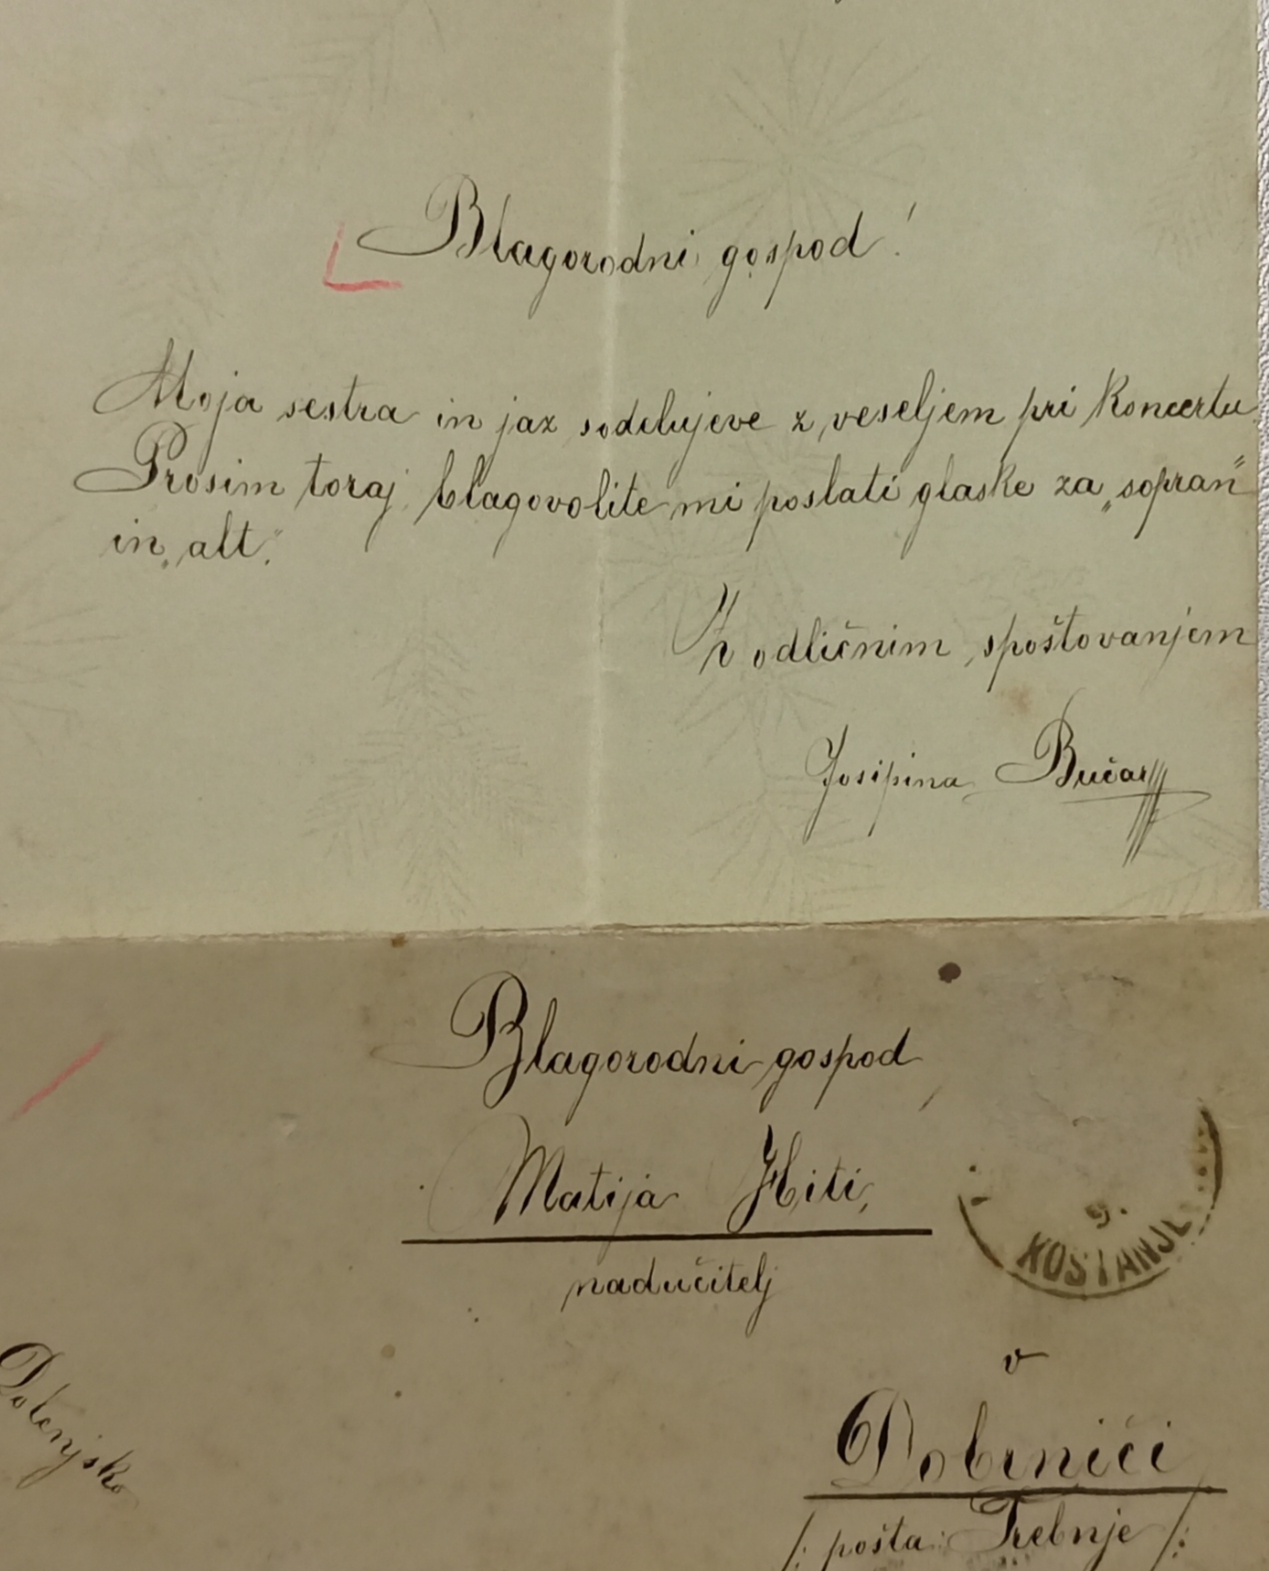 Blagorodni gospod!
Moja sestra in jaz sodelujeve z veseljem pri koncertu.
Prosim toraj blagovolite mi poslati glaske za „sopran“
in „alt.“
Z odličnim spoštovanjem
Josipina Bučar
Blagorodni gospod
Matija Hiti,
nadučitelj
9.
KOSTANJE
v
Dobrniči
/: pošta: Trebnje /:
Dolenjsko